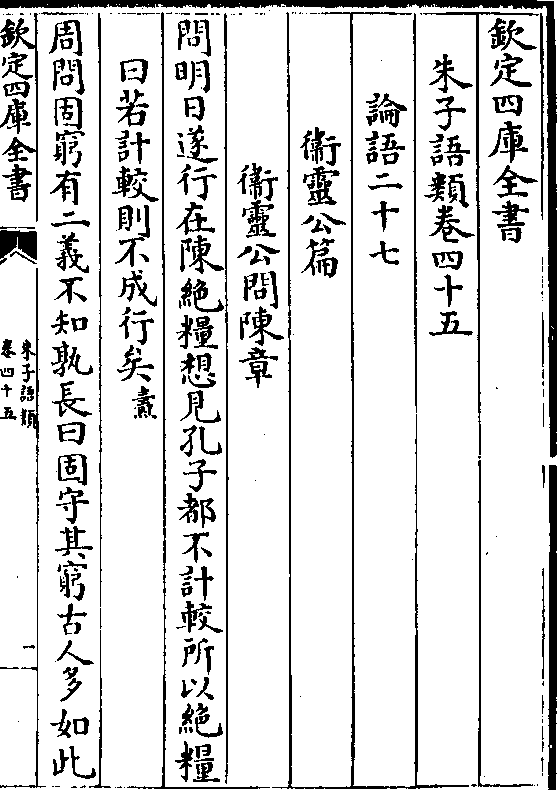 欽定四庫全書
朱子語類卷四十五
論語二十七
衞靈公篇
衞靈公問陳章
問明日遂行在陳絶糧想見孔子都不計較所以絶糧
曰若計較則不成行矣燾
周問固窮有二義不知孰長曰固守其窮古人多如此
欽定四庫全書
朱子語類
卷四十五
一